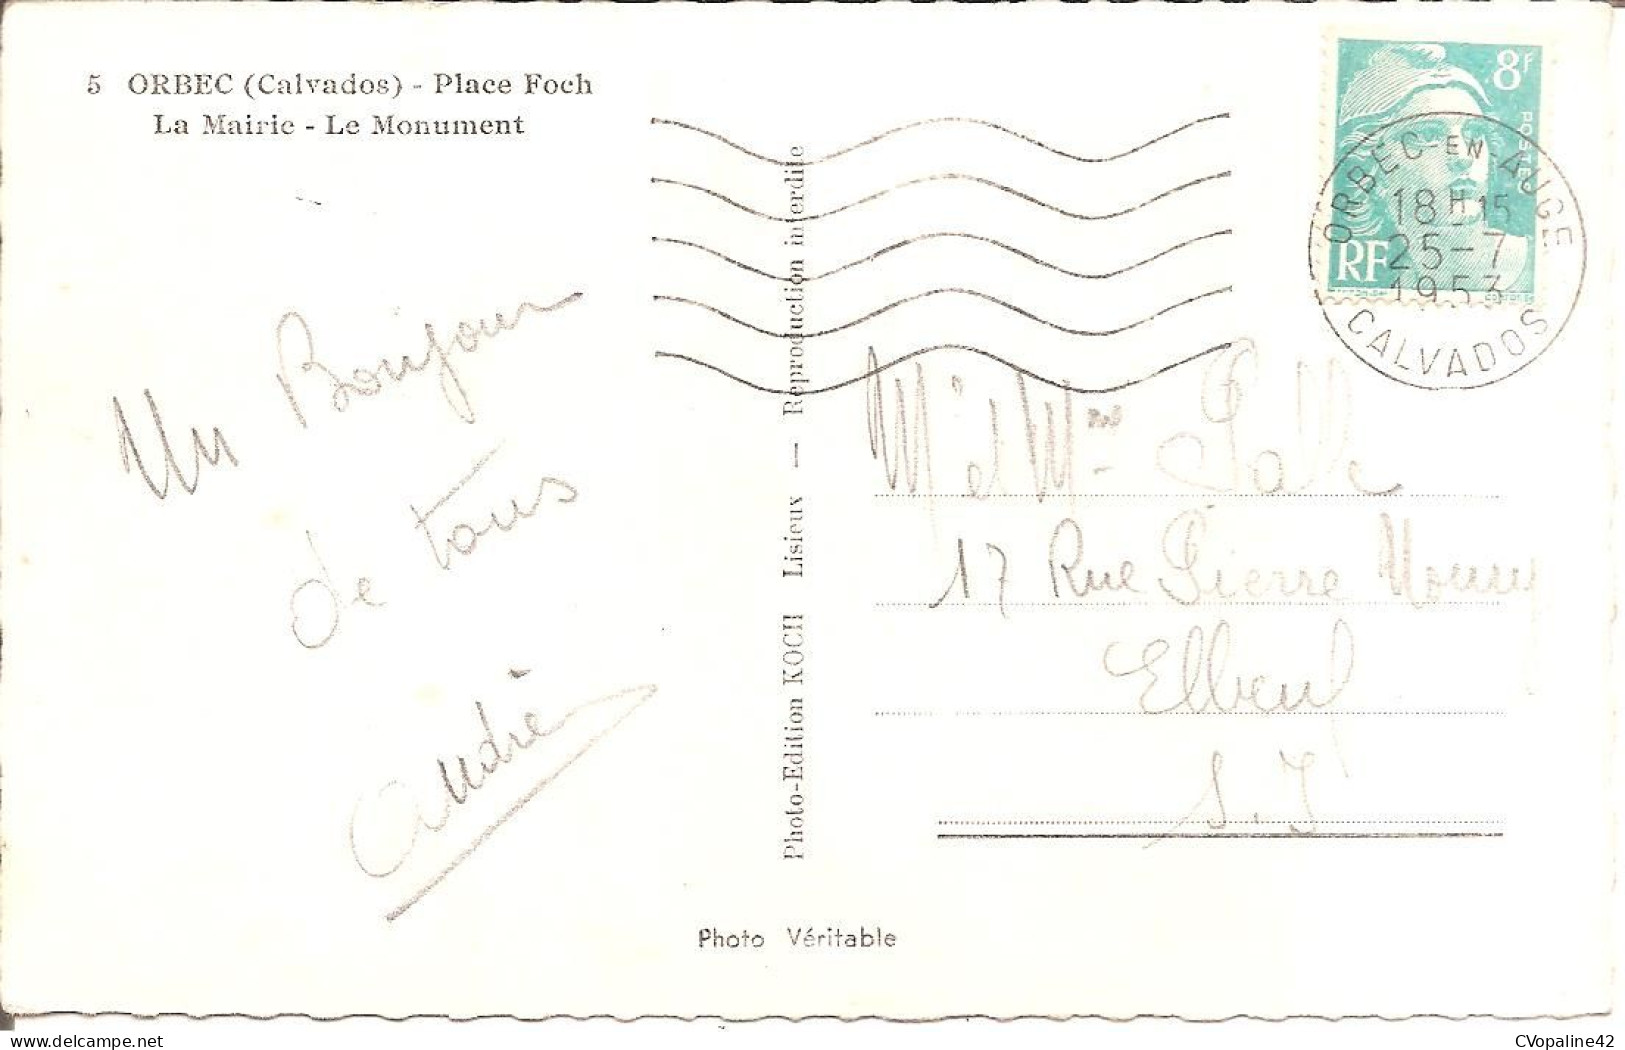 5 ORBEC (Calvados) - Place Foch
La Mairie - Le Monument
Un Bonjour
de tous
André
Photo-Edition KOCH Lisieux — Reproduction interdite
8F
POSTES
RF
ORBEC-EN-AUGE
18H15
25-7
1953
CALVADOS
Mr et Mme
17 Rue Pierre
Elbeuf
S. I
Photo Véritable
CVopaline42